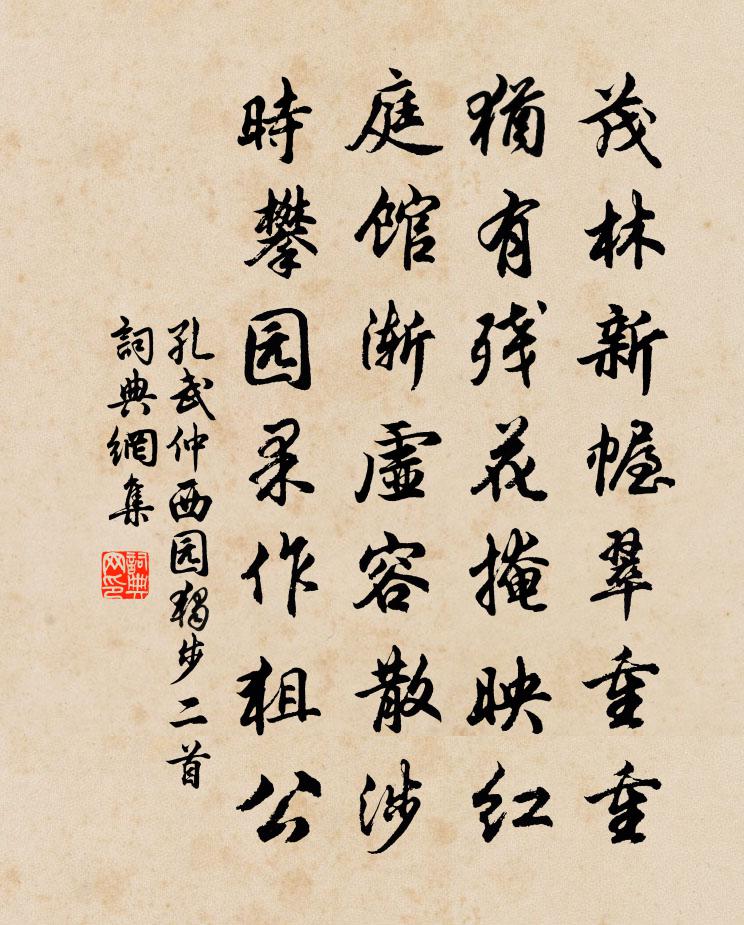 茂林新幄翠重重
猶有残花掩映紅
庭館漸虛容散涉
時攀园果作狙公
孔武仲西园獨步二首
詞典網集
詞典网印